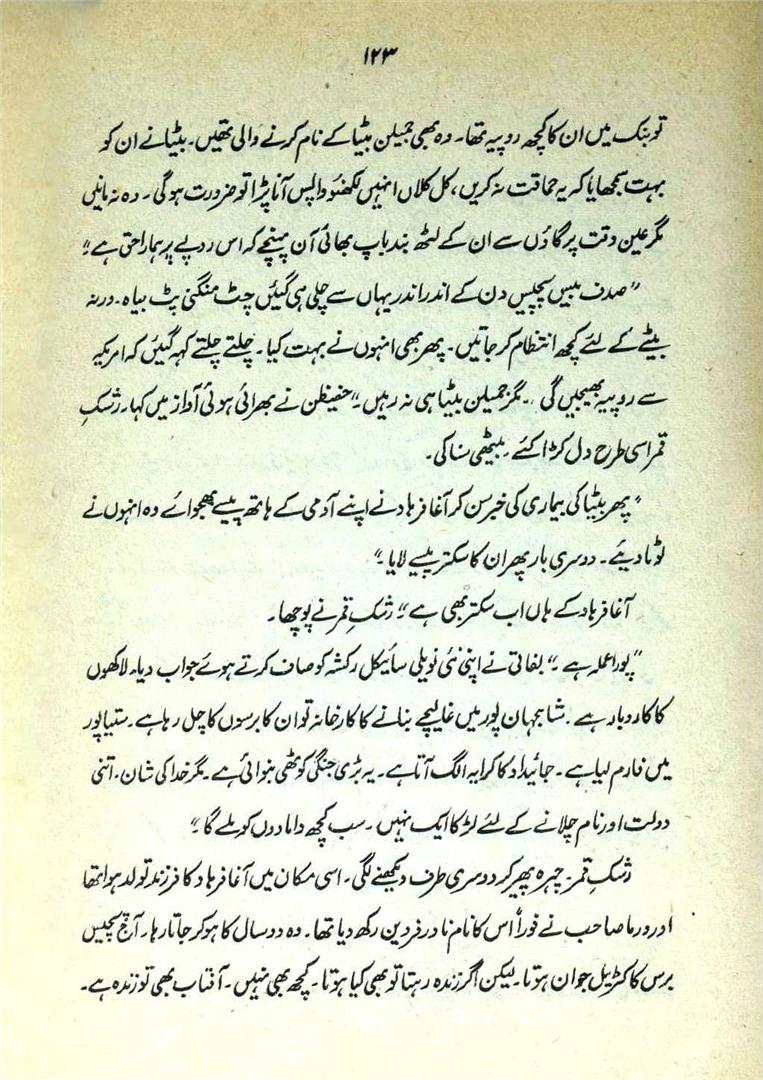 ۱۲۳
تو بنک میں ان کا کچھ روپیہ تھا۔ وہ بھی جمیلن بٹیا کے نام کرنے والی تھیں۔ بٹیا نے ان کو
بہت سمجھایا کہ یہ حماقت نہ کریں، کل کلاں انہیں لکھنؤ واپس آنا پڑا تو ضرورت ہوگی۔ وہ نہ مانیں
مگر عین وقت پر گاؤں سے ان کے لٹھ بند باپ بھائی آن پہنچے کہ اس روپے پر ہمارا حق ہے"
"صدف بیس پچیس دن کے اندر اندر یہاں سے چلی ہی گئیں چٹ منگنی پٹ بیاہ۔ ورنہ
بیٹے کے لئے کچھ انتظام کر جاتیں۔ پھر بھی انہوں نے بہت کیا۔ چلتے چلتے کہہ گئیں کہ امریکہ
سے روپیہ بھیجیں گی۔ مگر جمیلن بٹیا ہی نہ رہیں۔" حفیظن نے بھرائی ہوئی آواز میں کہا۔ رشکِ
قمر اسی طرح دل کڑا کئے۔ بیٹھی سنا کی۔
"پھر بٹیا کی بیماری کی خبر سن کر آغا فرہاد نے اپنے آدمی کے ہاتھ پیسے بھجوائے وہ انہوں نے
لوٹا دیئے۔ دوسری بار پھر ان کا سکتر پیسے لایا۔"
آغا فرہاد کے ہاں اب سکتر بھی ہے" رشکِ قمر نے پوچھا۔
"پورا عملہ ہے۔" بفاتی نے اپنی نئی نویلی سائیکل رکشہ کو صاف کرتے ہوئے جواب دیا۔ لاکھوں
کا کاروبار ہے۔ شاہجہان پور میں غالیچے بنانے کا کارخانہ تو ان کا برسوں کا چل رہا ہے۔ ستیاپور
میں فارم لیا ہے۔ جائیداد کا کرایہ الگ آتا ہے۔ یہ بڑی جنگی کوٹھی بنوائی ہے۔ مگر خدا کی شان۔ اتنی
دولت اور نام چلانے کے لئے لڑکا ایک نہیں۔ سب کچھ دامادوں کو ملے گا۔"
رشکِ قمر۔ چہرہ پھیر کر دوسری طرف دیکھنے لگی۔ اسی مکان میں آغا فرہاد کا فرزند تولد ہوا تھا
اور ورما صاحب نے فوراً اس کا نام نادر فردین رکھ دیا تھا۔ وہ دو سال کا ہو کر جاتا رہا۔ آج پچیس
برس کا کڑیل جوان ہوتا۔ لیکن اگر زندہ رہتا تو بھی کیا ہوتا۔ کچھ بھی نہیں۔ آفتاب بھی تو زندہ ہے۔